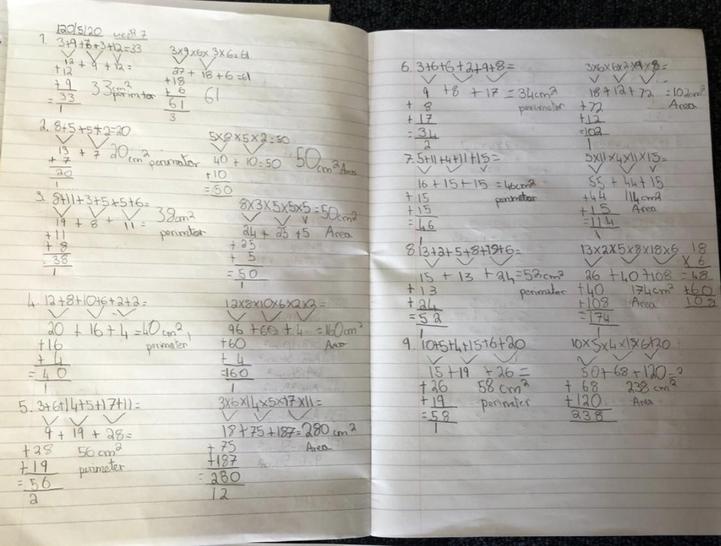 120/5/20 week 7
1. 3+9+6+3+12=33
12 + 9 + 12=
+12
+ 9
33
1
33cm²
perimeter
3x9x6x3x6=61
27 + 18 + 6=61
+18
+ 6
61
3
61
2. 8+5+5+2=20
13 + 7
+ 7
20
1
20cm² perimeter
5x8x5x2=50
40 + 10=50
+10
=50
50cm² Area
3. 8+11+3+5+5+6=
19 + 8 + 11=
+11
+ 8
=38
1
38cm²
perimeter
8x3x5x5x5=50cm²
Area
24 + 25 + 5
+ 25
+ 5
=50
1
4. 12+8+10+6+2+2=
20 + 16 + 4=40cm²
perimeter
+16
+ 4
=40
1
12x8x10x6x2x2=
96 + 60 + 4=160cm²
Area
+60
+ 4
=160
1
5. 3+6+14+5+17+11=
9 + 19 + 28=
+28
+19
=56
2
56cm²
perimeter
3x6x14x5x17x11=
18+75+187=280cm²
Area
+ 75
+187
=280
12
6. 3+6+6+2+9+8=
9 +8 + 17 =34cm²
perimeter
+ 8
+ 17
=34
2
3x6x6x2x9x8=
18+12+72 =102cm²
Area
+72
+12
=102
1
7. 5+11+4+11+15=
16+15+15=46cm²
perimeter
+15
+15
=46
1
5x11x4x11x15=
55+44+15
+44
+15
=114
1
114cm²
Area
8. 13+2+5+8+18+6=
15 + 13 + 24=52cm²
perimeter
+13
+24
=52
1
13x2x5x8x18x6
26+40+108
+40
+108
=174
1
174cm²
Area
18
x 6
=48
+60
108
9. 10+5+4+15+6+20
15+19 +26=
+26
+19
=58
1
58 cm²
perimeter
10x5x4x15x6+20
50+68+120=
+ 68
+120
238
238cm²
Area